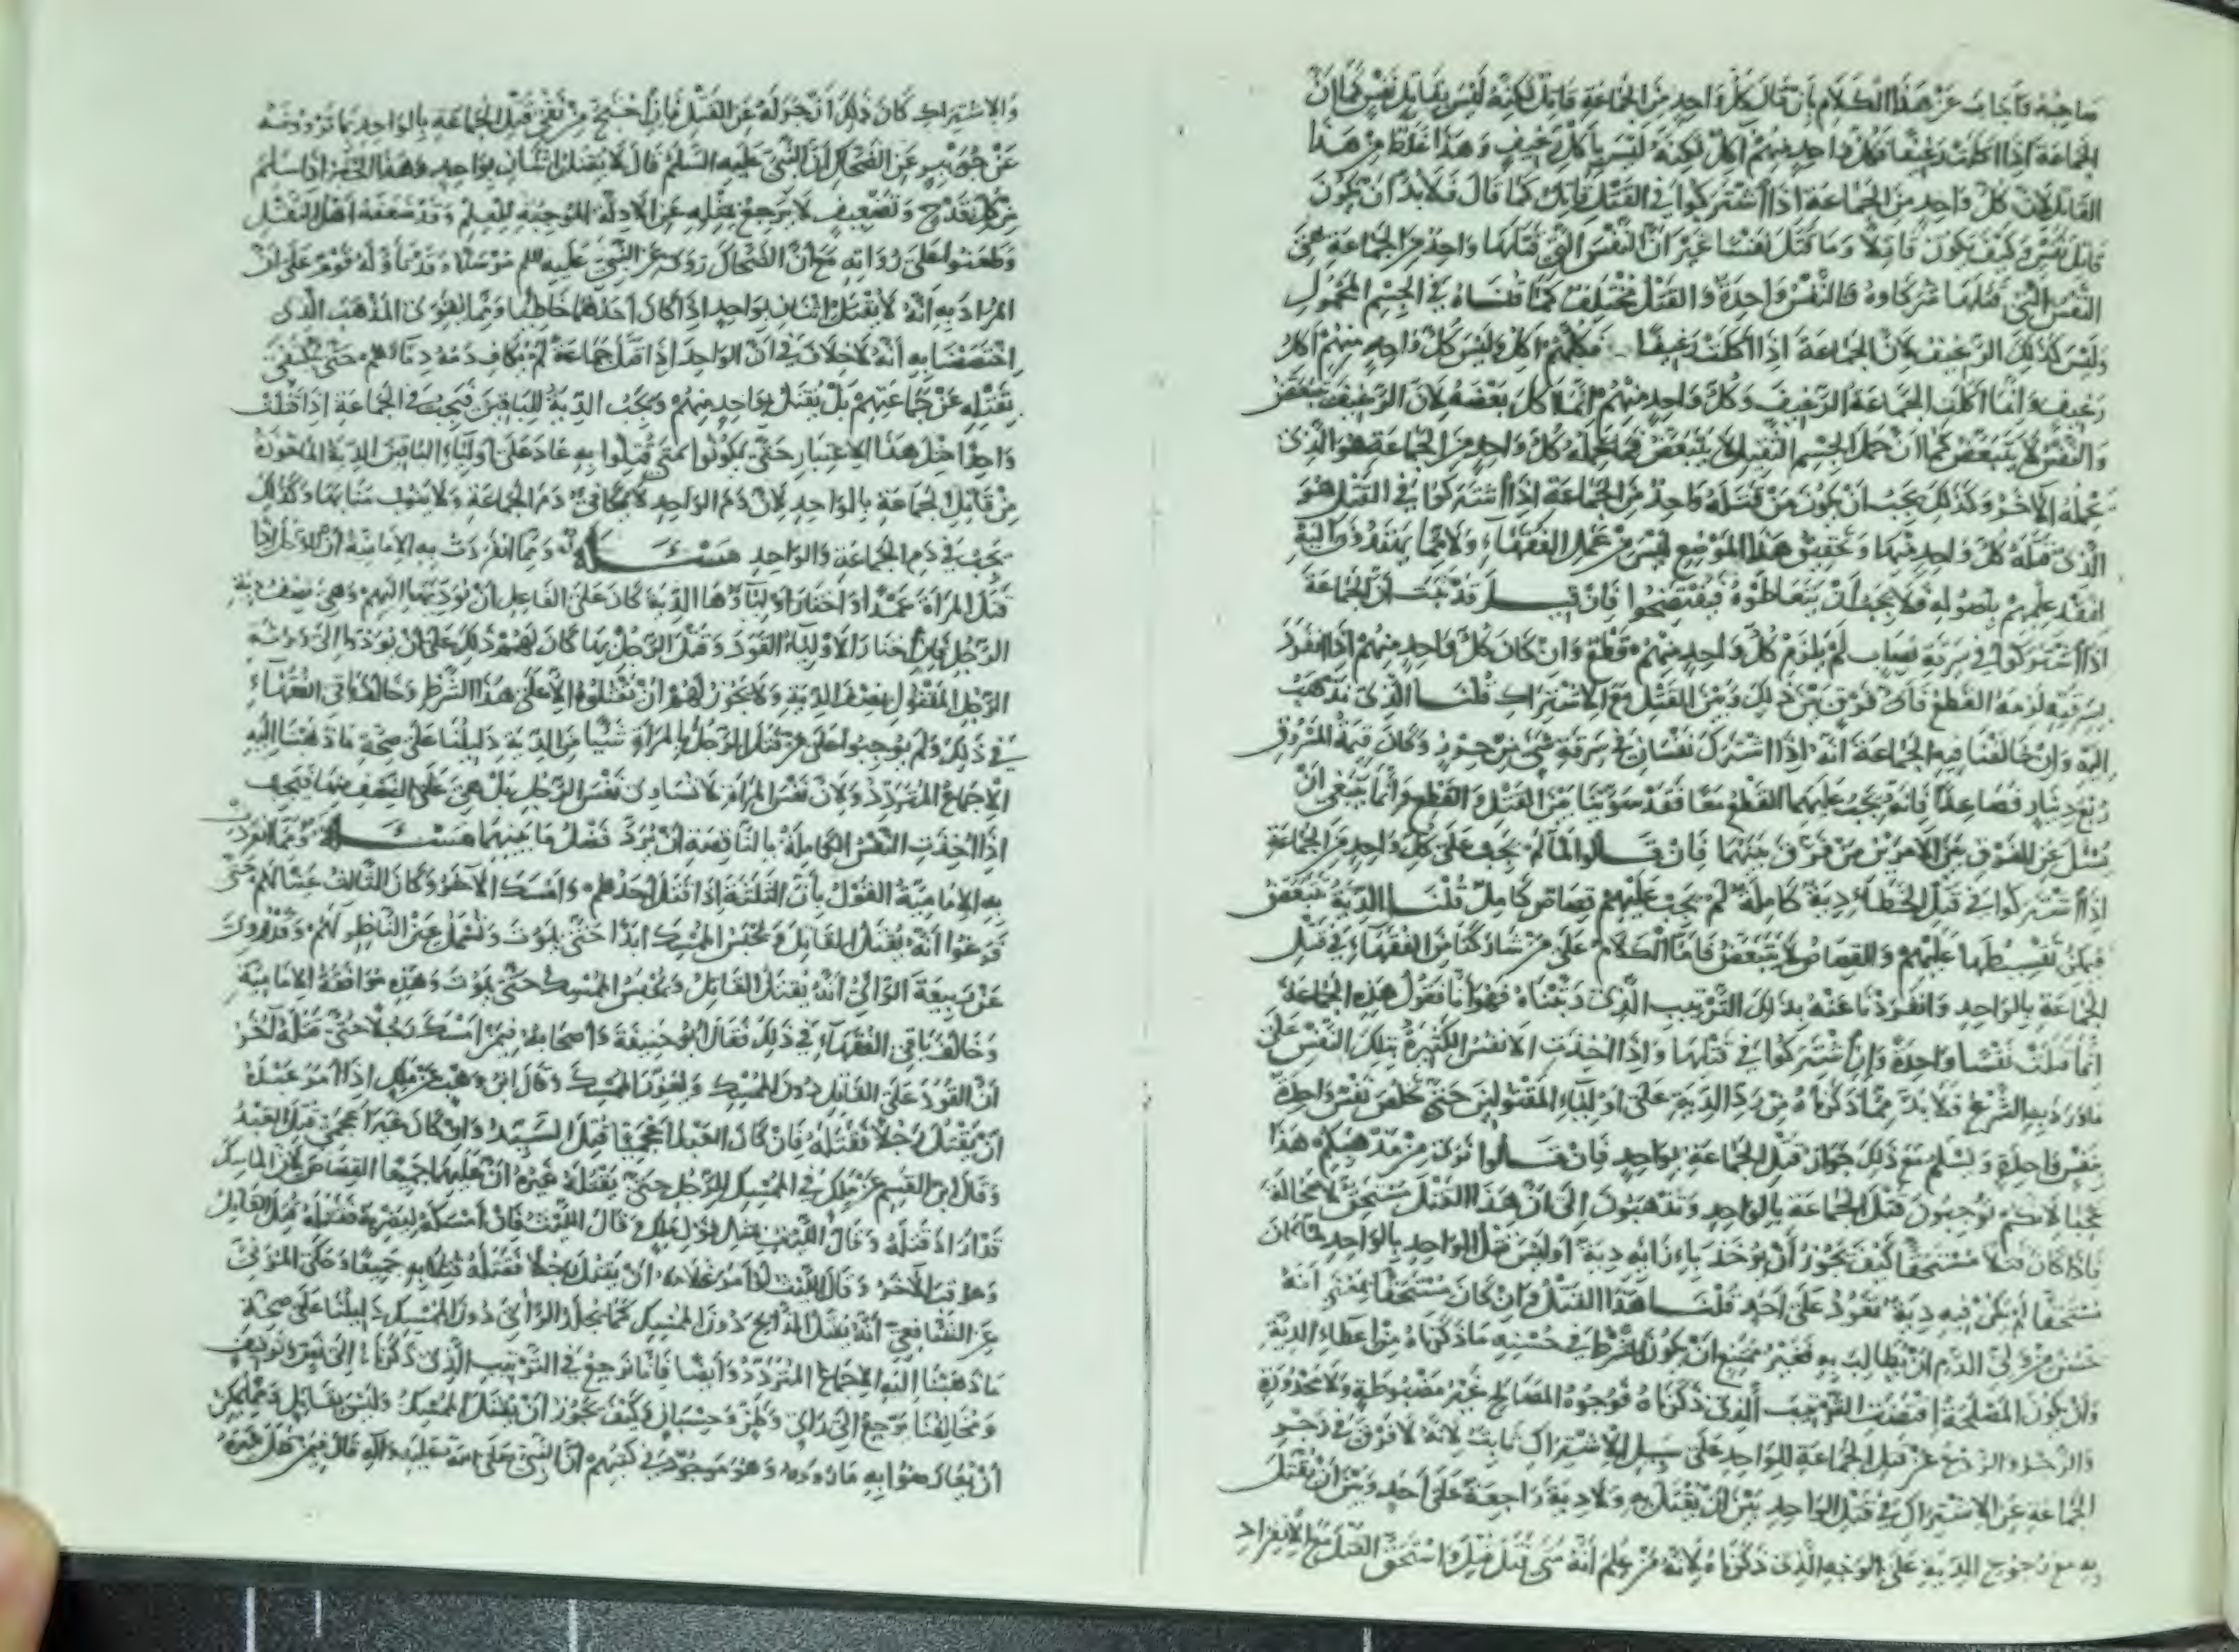 صاحبه فأجاب عن هذا الكلام بأن قال كل واحد من الجماعة قاتل لكنه ليس بقاتل نفس كما ان
الجماعة اذا اكلت رغيفا فكل واحد منهم اكل لكنه ليس بآكل رغيف وهذا غلط من هذا
القائل لان كل واحد من الجماعة اذا اشتركوا في القتل قاتل كما قال فلا بد ان يكون
قاتل نفس وكيف يكون قاتلا وما قتل نفسا غير ان النفس التي قتلها واحد من الجماعة هي
النفس التي قتلها شركاؤه فالنفس واحدة والقتل مختلف كما قلناه في الجسم المحمول
وليس كذلك الرغيف لان الجماعة اذا اكلت رغيفا فكلهم اكل وليس كل واحد منهم اكل
رغيف وانما اكلت الجماعة الرغيف وكل واحد منهم انما اكل بعضه لان الرغيف يتبعض
والنفس لا يتبعض كما ان حمل الجسم الثقيل لا يتبعض فما يحمله كل واحد من الجماعة هو الذي
يحمله الآخر وكذلك يجب ان يكون من قتله واحد من الجماعة اذا اشتركوا في القتل هو
الذي قتله كل واحد منها وتحقيق هذا الموضع ليس من عمل الفقهاء ولا مما ينفذون اليه
لفقد علمهم بأصوله فلا يجب أن يتعاطوه فيفتضحوا فان قيل قد ثبت ان الجماعة
اذا اشتركوا في سرقة نصاب لم يلزم كل واحد منهم قطع وان كان كل واحد منهم اذا انفرد
بسرقته لزمه القطع فأي فرق بين ذلك وبين القتل مع الاشتراك قلنا الذي نذهب
اليه وان خالفنا فيه الجماعة انه اذا اشترك نفسان في سرقة شيء من حرز وكان قيمة المسروق
ربع دينار فصاعدا فانه يجب عليهما القطع معا فقد سوينا بين القتل والقطع وانما ينبغي ان
يسئل عن الفرق بين الامرين من فرق بينهما فان قالوا لما لم يجب على كل واحد من الجماعة
اذا اشتركوا في قتل الخطاء دية كاملة لم يجب عليهم قصاص كامل قلنا الدية تتبعض
فيمكن تقسيطها عليهم والقصاص لا يتبعض فاما الكلام على من شاركنا من الفقهاء في قتل
الجماعة بالواحد وانفردنا عنه بذلك الترتيب الذي رتبناه فهو انا نقول هذه الجماعة
انما قتلت نفسا واحدة وان اشتركوا في قتلها واذا اخذت الانفس الكثيرة بتلك النفس على
ما ورد به الشرع فلا بد مما ذكرناه من رد الدية على اولياء المقتولين حتى تخلص نفس واحدة
بنفس واحدة ويسلم مع ذلك جواز قتل الجماعة بواحد فان قالوا نرى من مذهبكم هذا
عجبا لانكم توجبون قتل الجماعة بالواحد وتذهبون الى ان هذا القتل مستحق لا محالة
فاذا كان قتلا مستحقا كيف يجوز أن يؤخذ بازائه دية اوليس قتل الواحد بالواحد لما كان
مستحقا لم يكن فيه دية تعود على احد قلنا هذا القتل وان كان مستحقا بمعنى انه
حسن من ولي الدم ان يطالب به فغير ممتنع ان يكون الشرط في حسنه ما ذكرناه من اعطاء الدية
وان يكون المصلحة اقتضت الترتيب الذي ذكرناه فوجوه المصالح غير مضبوطة ولا محدودة
والزجر والردع عن قتل الجماعة للواحد على سبيل الاشتراك ثابت لانه لا فرق في زجر
الجماعة عن الاشتراك في قتل الواحد بين ان يقتل به ولا دية راجعة على احد وبين ان يقتل
به مع رجوع الدية على الوجه الذي ذكرناه لانه من علم انه متى قتل قتل واستحق القتل مع الانفراد
والاشتراك كان ذلك ازجر له عن القتل فان احتج من نفى قتل الجماعة بالواحد بما تروونه
عن جويبر عن الضحاك ان النبي عليه السلم قال لا يقتل اثنان بواحد وهذا الخبر اذا سلم
من كل قدح وتضعيف لا يرجع بمثله عن الادلة الموجبة للعلم وقد ضعفه اهل النقل
وطعنوا على رواته مع ان الضحاك رواه عن النبي عليه السلم مرسلا وقد تأوله قوم على ان
المراد به انه لا يقتل اثنان بواحد اذا كان احدهما خاطئا ومما يقوى المذهب الذي
اختصصنا به انه لا خلاف في ان الواحد اذا قتل جماعة لم يكاف دمه دماءهم حتى يكتفى
بقتله عن جماعتهم بل يقتل بواحد منهم ويجب الدية للباقين فيجب في الجماعة اذا قتلت
واحدا مثل هذا الاعتبار حتى يكونوا متى قتلوا به عاد على اولياء الباقين الدية المأخوذة
من قاتل الجماعة بالواحد لان دم الواحد لا يكافئ دم الجماعة ولا ينوب منابها وكذلك
يجب في دم الجماعة والواحد مسئلة ومما انفردت به الامامية ان الرجل اذا
قتل المرأة عمدا واختار اولياؤها الدية كان على القاتل ان يؤديها اليهم وهي نصف دية
الرجل فان اختار الاولياء القود وقتل الرجل بها كان لهم ذلك على ان يؤدوا الى ورثة
الرجل المقتول نصف الدية ولا يجوز لهم ان يقتلوه الا على هذا الشرط وخالف باقي الفقهاء
في ذلك ولم يوجبوا على من قتل الرجل بالمرأة شيئا من الدية دليلنا على صحة ما ذهبنا اليه
الاجماع المتردد ولان نفس المرأة لا تساوي نفس الرجل بل هي على النصف منها فيجب
اذا اخذت النفس الكاملة بالناقصة ان يرد فضل ما بينهما مسئلة ومما انفردت
به الامامية القول بأن الثلثة اذا قتل احدهم وامسك الآخر وكان الثالث عينا لهم حتى
فرغوا انه يقتل القاتل ويحبس الممسك ابدا حتى يموت وتسمل عين الناظر لهم وقد روي
عن ربيعة الرائي انه يقتل القاتل ويحبس الممسك حتى يموت وهذه موافقة الامامية
وخالف باقي الفقهاء في ذلك فقال ابو حنيفة واصحابه فيمن امسك رجلا حتى قتله آخر
ان القود على القاتل دون الممسك ويعزر الممسك وقال ابن وهب عن ملك اذا امر عبده
ان يقتل رجلا فقتله فان كان العبد اعجميا قتل السيد وان كان غير اعجمي قتل العبد
وقال ابن القسم عن ملك في الممسك للرجل حتى يقتله غيره ان عليهما جميعا القصاص لان الماسك
قد اراد قتله وقال الليث مثل قول ملك قال الليث فان امسكه ليضربه فقتله قتل القاتل
وعوقب الآخر وقال الليث لو امر غلامه ان يقتل رجلا فقتله قتلا به جميعا وحكى المزني
عن الشافعي انه يقتل الذابح دون الممسك كما يحد الزاني دون الممسك دليلنا على صحة
ما ذهبنا اليه الاجماع المتردد وايضا فانا نرجع في الترتيب الذي ذكرناه الى نص وتوقيف
ومخالفنا يرجع الى رأي وظن وحسبان وكيف يجوز ان يقتل الممسك وليس بقاتل ومما يمكن
ان يعارضوا به ما رووه وهو موجود في كتبهم ان النبي صلى الله عليه وآله قال فيمن قتل غيره